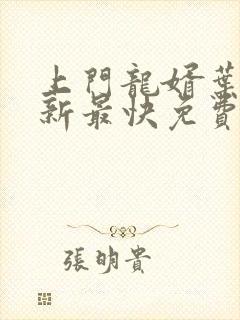 上門龍婿葉
新最快免費
張明貴